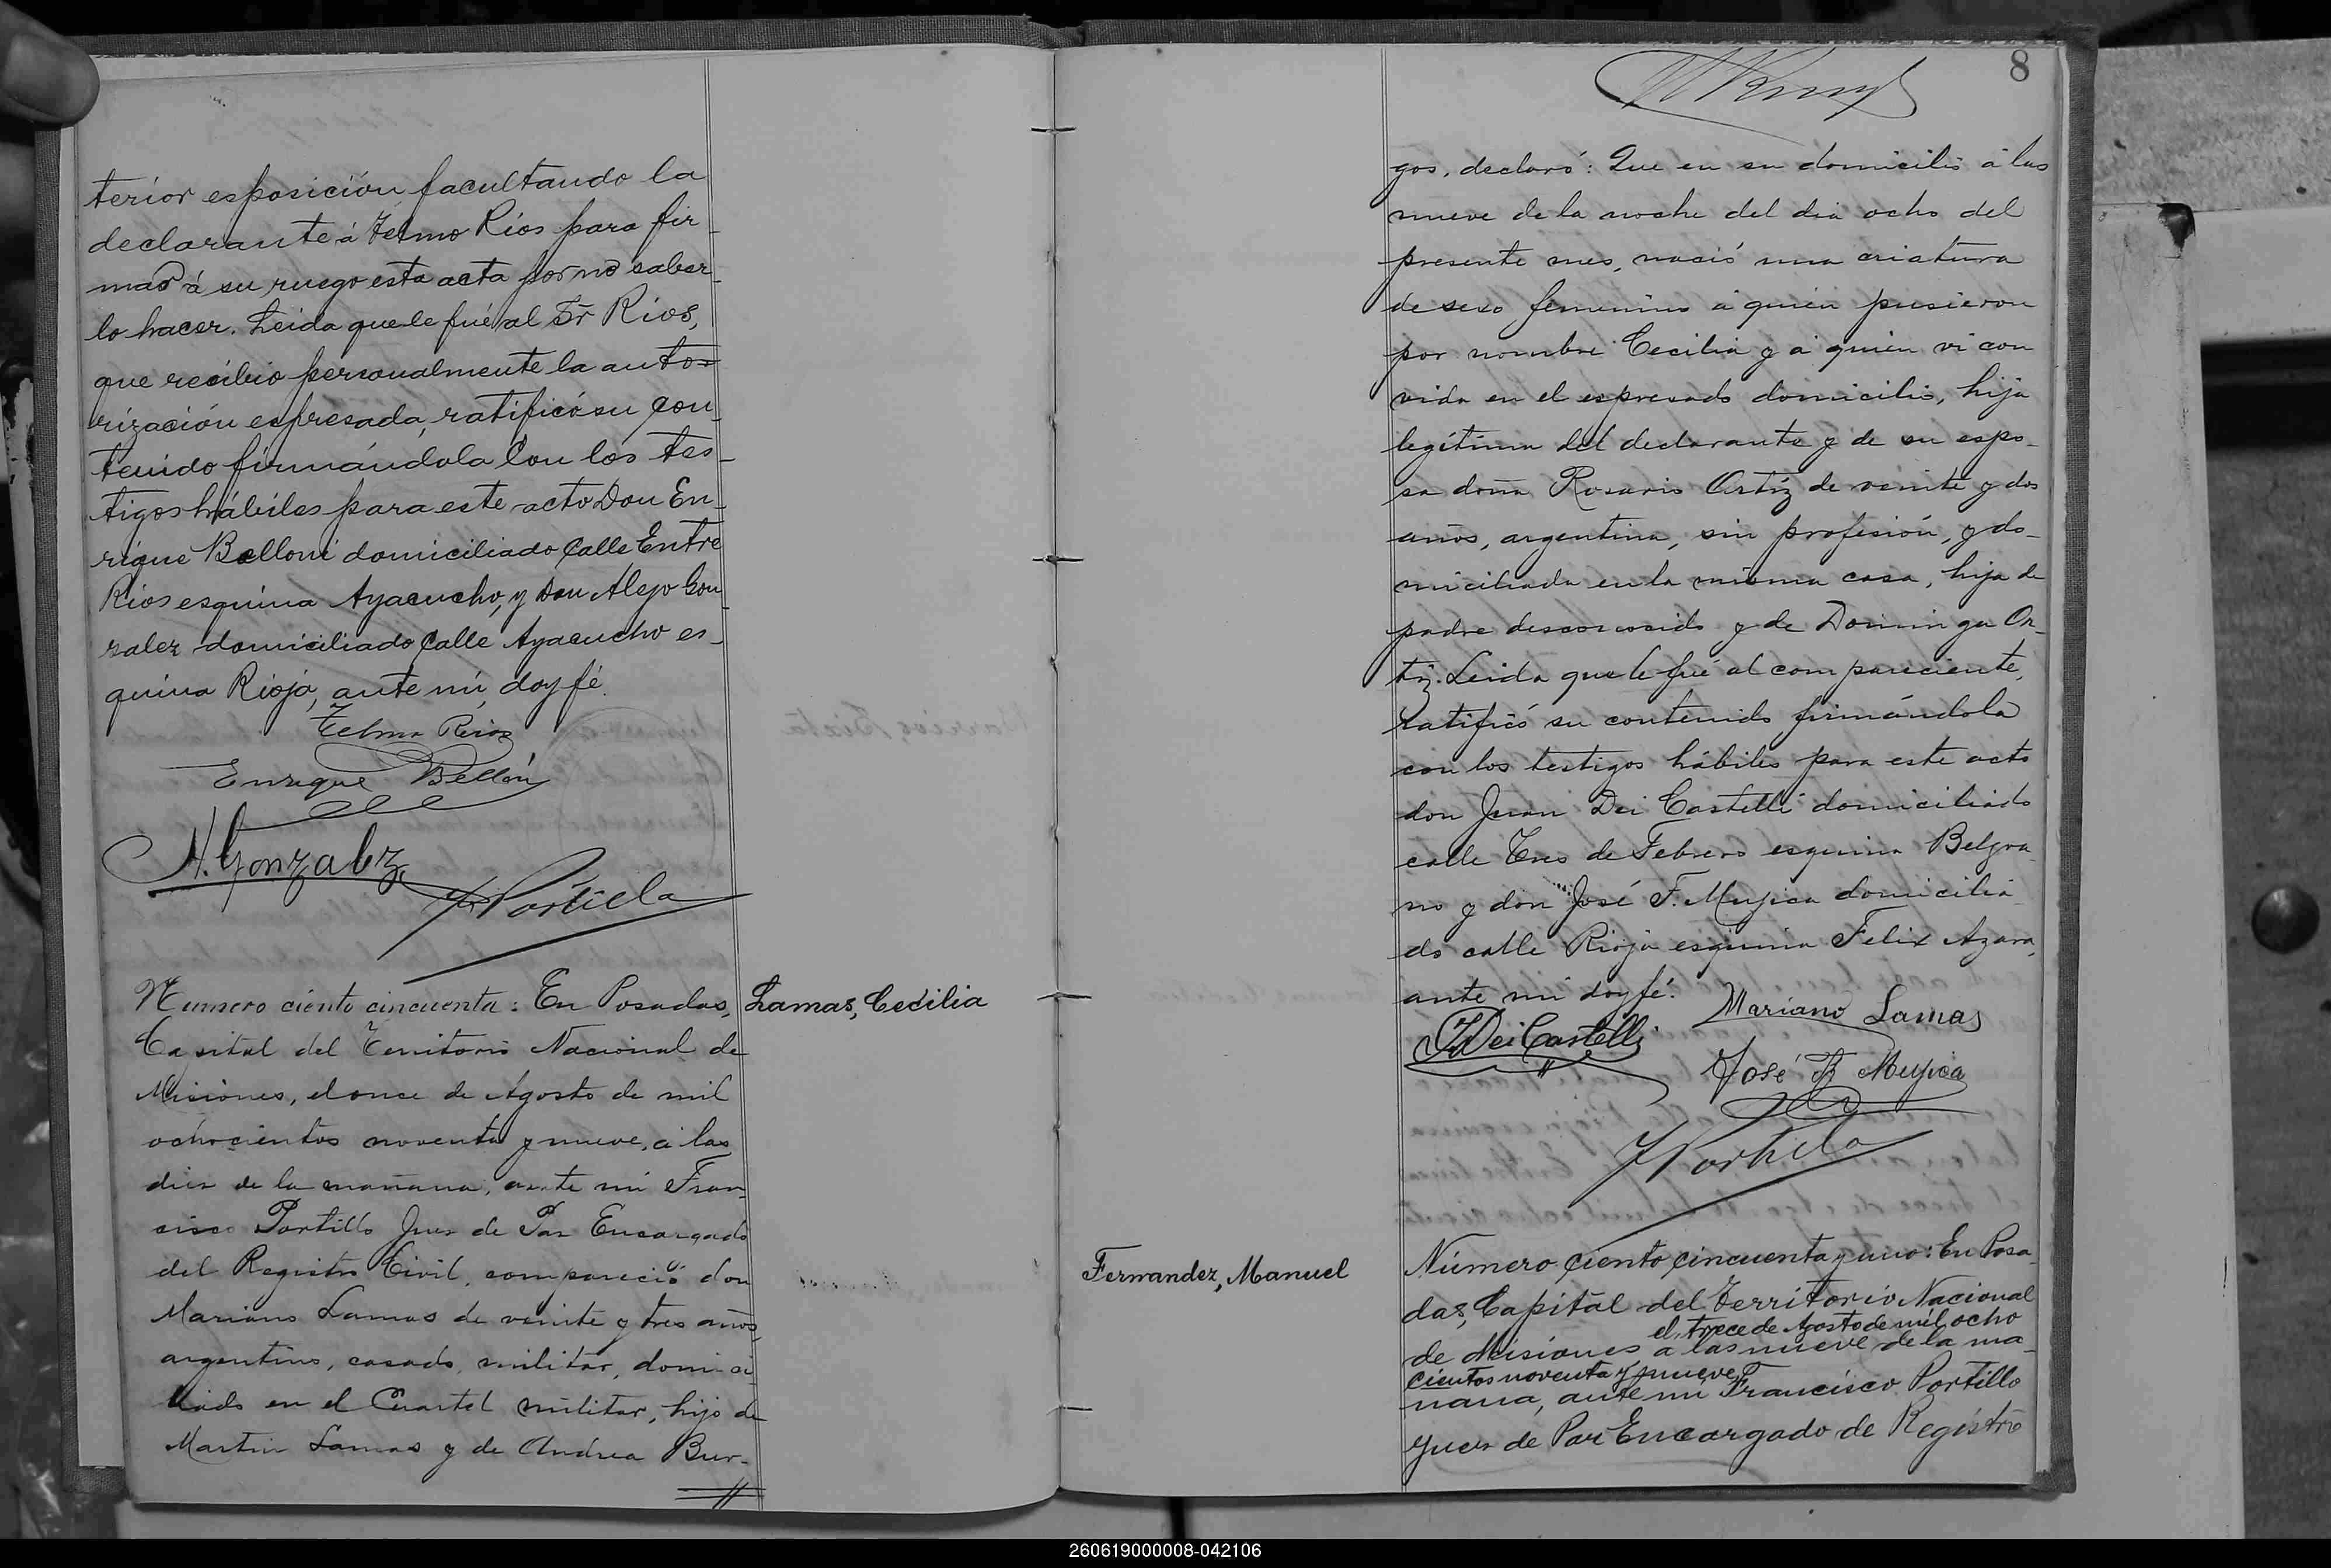 terior esposición facultando la
declarante á Telmo Ríos para fir-
mar á su ruego esta acta por no saber-
lo hacer. Leida que le fué al Sr Ríos,
que recibio personalmente la auto-
rización espresada, ratificó su con-
tenido firmándola con los tes-
tigos hábiles para este acto Don En-
rique Belloni domiciliado Calle Entre
Rios esquina Ayacucho, y Don Alejo Gon-
zalez domiciliado Calle Ayacucho es-
quina Rioja, ante mi, doy fé.
Telmo Rios
Enrique Belloni
A. Gonzalez
F. Portillo
Numero ciento cincuenta: En Posadas,
Lamas, Cecilia
Capital del Territorio Nacional de
Misiones, el once de Agosto de mil
ochocientos noventa y nueve, á las
diez de la mañana, ante mi Fran-
cisco Portillo Juez de Paz Encargado
del Registro Civil, compareció don
Mariano Lamas de veinte y tres años,
argentino, casado, militar, domici-
liado en el Cuartel militar, hijo de
Martin Lamas y de Andrea Bur-
8
gos, declaró: Que en su domicilio á las
nueve de la noche del dia ocho del
presente mes, nació una criatura
de sexo femenino á quién pusieron
por nombre Cecilia y á quién vi con
vida en el espresado domicilio, hija
legítima del declarante y de su espo-
sa doña Rosario Ortiz de veinte y dos
años, argentina, sin profesión, y do-
miciliada en la misma casa, hija de
padre desconocido y de Dominga Or-
tiz. Leida que le fué al compareciente,
ratificó su contenido firmándola
con los testigos hábiles para este acto
don Juan Dei Castelli domiciliado
calle Tres de Febrero esquina Belgra-
no y don José F. Mujica domicilia-
do calle Rioja esquina Felix Azara,
ante mi doy fé.
Mariano Lamas
J Dei Castelli
José F Mujica
F Portillo
Fernandez, Manuel
Número ciento cincuenta y uno: En Posa-
das, Capital del Territorio Nacional
el trece de Agosto de mil ocho
de Misiones a las nueve de la ma-
cientos noventa y nueve
ñana, ante mi Francisco Portillo
Juez de Paz Encargado de Registro